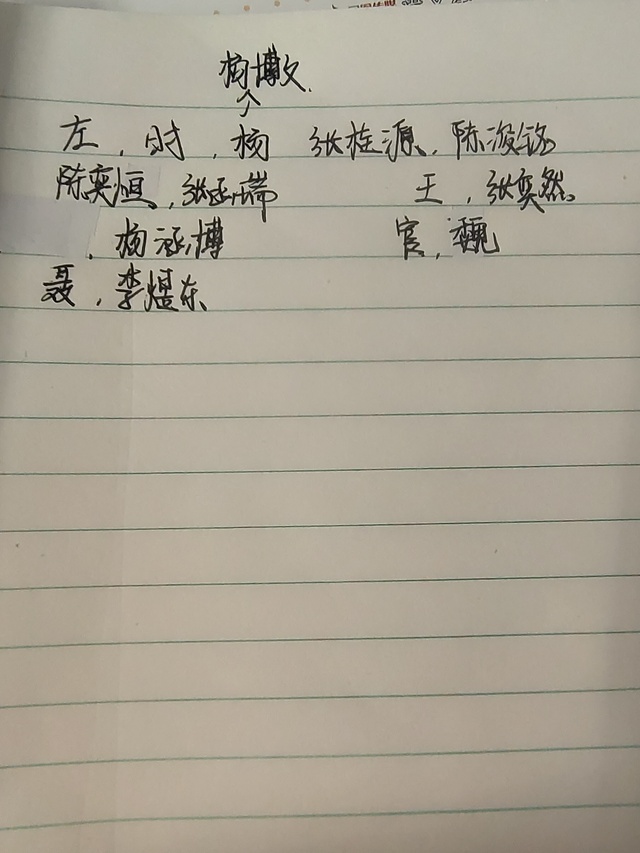 杨博文.
左,时,杨 张桂源,陈浚铭
陈奕恒,张函瑞 王,张奕然。
,杨涵博 官,魏
聂,李煜东.